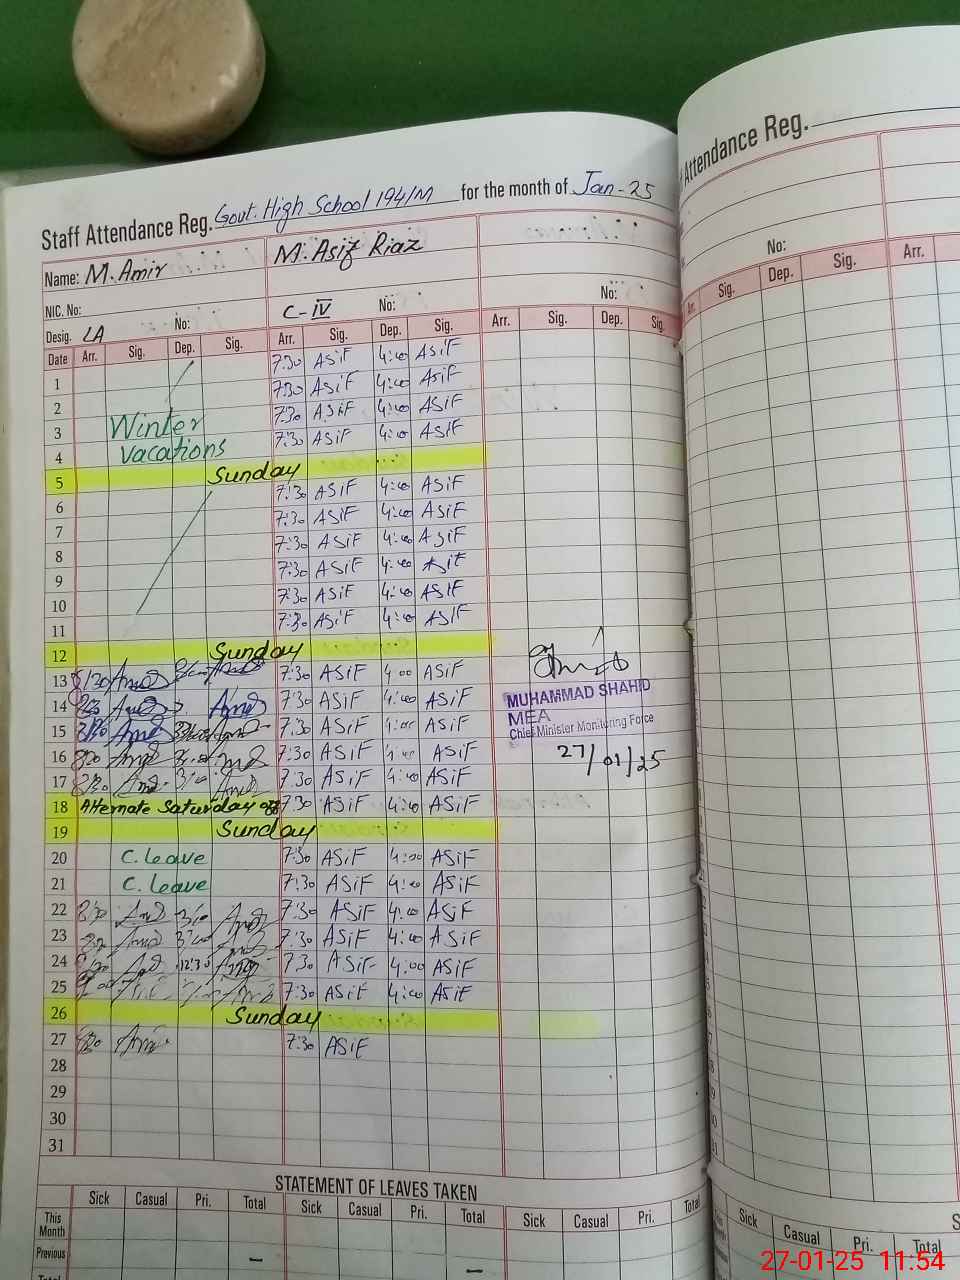 Staff Attendance Reg. Govt. High School 194/M for the month of Jan-25
Name: M. Amir M. Asif Riaz
NIC. No:
Desig. LA No: C-IV No: No:
Date Arr. Sig. Dep. Sig. Arr. Sig. Dep. Sig. Arr. Sig. Dep. Sig.
1 7:30 ASiF 4:00 ASiF
2 7:30 ASiF 4:00 ASiF
3 Winter 7:30 ASiF 4:00 ASiF
4 vacations 7:30 ASiF 4:00 ASiF
5 Sunday
6 7:30 ASiF 4:00 ASiF
7 7:30 ASiF 4:00 ASiF
8 7:30 ASiF 4:00 ASiF
9 7:30 ASiF 4:00 ASiF
10 7:30 ASiF 4:00 ASiF
11 7:30 ASiF 4:00 ASiF
12 Sunday
13 7:30 ASiF 4:00 ASiF
14 7:30 ASiF 4:00 ASiF
15 7:30 ASiF 4:00 ASiF
16 7:30 ASiF 4:00 ASiF
17 7:30 ASiF 4:00 ASiF
18 Alternate Saturday off 7:30 ASiF 4:00 ASiF
19 Sunday
20 C. leave 7:30 ASiF 4:00 ASiF
21 C. leave 7:30 ASiF 4:00 ASiF
22 7:30 ASiF 4:00 ASiF
23 7:30 ASiF 4:00 ASiF
24 12:30 7:30 ASiF 4:00 ASiF
25 7:30 ASiF 4:00 ASiF
26 Sunday
27 7:30 ASiF
28
29
30
31
MUHAMMAD SHAHID
MEA
Chief Minister Monitoring Force
27/01/25
STATEMENT OF LEAVES TAKEN
Sick Casual Pri. Total Sick Casual Pri. Total Sick Casual Pri. Total
This Month
Previous - -
Total
Attendance Reg.
No:
Arr. Sig. Dep. Sig. Arr.
Sick Casual Pri. Total S
27-01-25 11:54